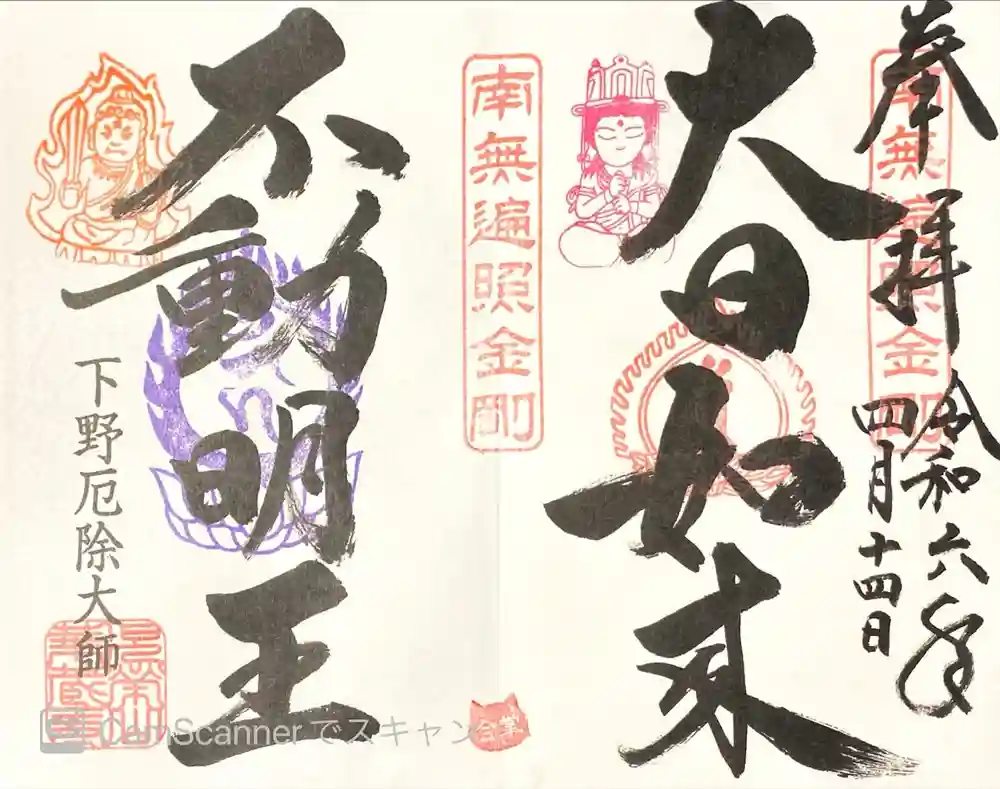 奉拝
令和六年
四月十四日
大日如来
南無遍照金剛
南無遍照金剛
不動明王
下野厄除大師
合掌
CamScannerでスキャン